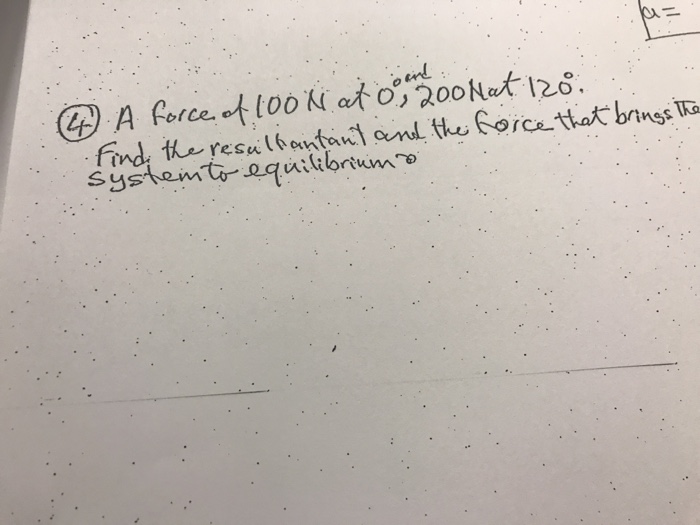 a=
④ A force of 100 N at 0°, and 200N at 120°.
Find, the resultantant and the force that brings The
system to equilibrium